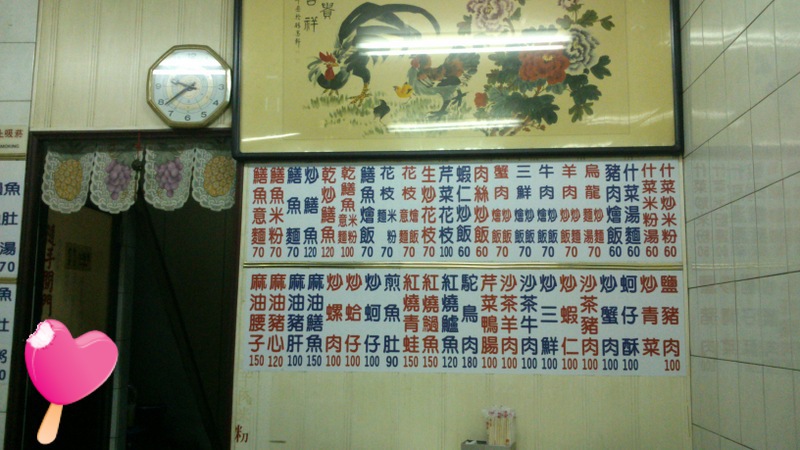 什菜炒米粉 60
什菜米粉湯 60
什菜湯麵 60
豬肉燴飯 60
烏龍炒麵湯麵 70
羊肉炒麵燴飯 70
牛肉炒飯燴飯 70
三鮮炒飯燴飯 70
蟹肉炒飯燴飯 70
肉絲炒飯 60
蝦仁炒飯 60
芹菜花枝 100
生炒花枝 70
花枝意麵燴飯 70
花枝麵米粉 70
鱔魚燴飯 70
乾鱔魚意麵米粉 100
乾炒鱔魚 120
炒鱔魚 120
鱔魚麵 70
鱔魚米粉 70
鱔魚意麵 70
鹽豬肉 100
炒青菜
蚵仔酥 100
炒蟹肉 100
沙茶豬肉 100
炒蝦仁 100
炒三鮮 100
沙茶牛肉 100
沙茶羊肉 100
芹菜鴨腸 100
鴕鳥肉 180
紅燒鱸魚 120
紅燒鯢魚 150
紅燒青蛙 150
煎魚肚 90
炒蚵仔 100
炒蛤仔 100
炒螺肉 100
麻油鱔魚 150
麻油豬肝 100
麻油豬心 120
麻油腰子 150
魚肚湯 70
粉